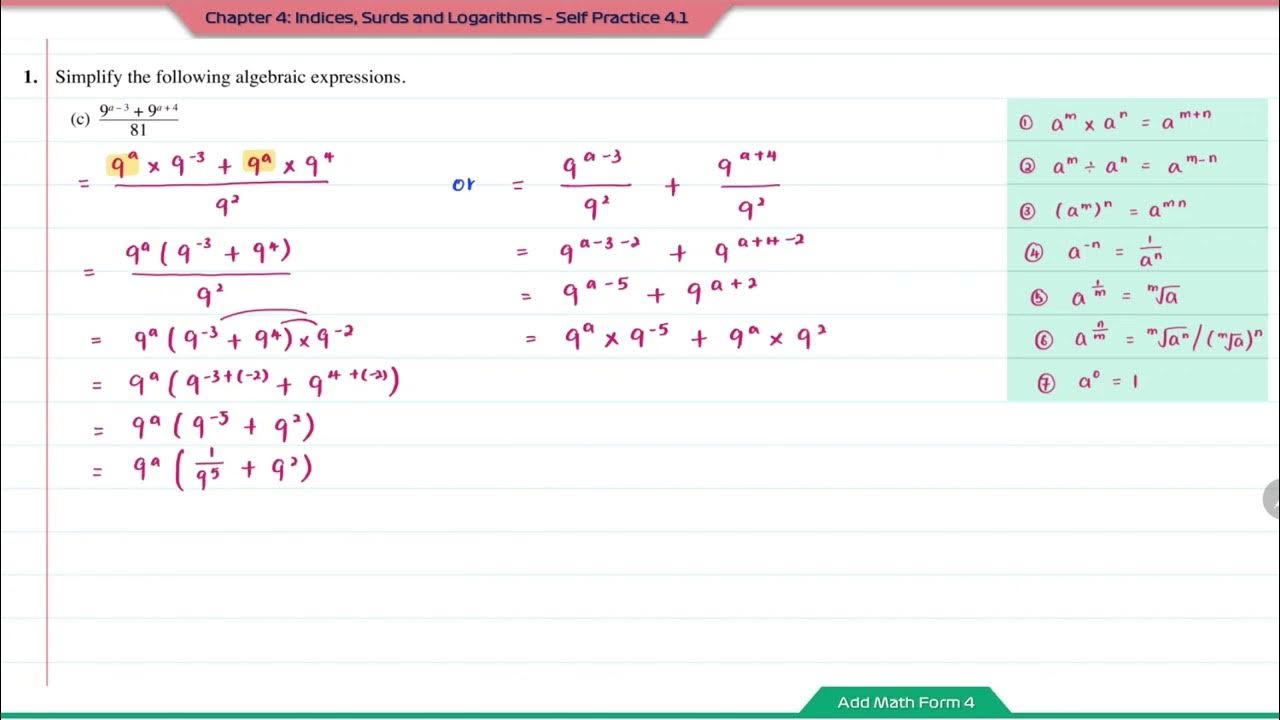 Chapter 4: Indices, Surds and Logarithms - Self Practice 4.1
1. Simplify the following algebraic expressions.
(c) (9^(a – 3) + 9^(a + 4))/81
= (9^a × 9^-3 + 9^a × 9^4)/9^2
= (9^a (9^-3 + 9^4))/9^2
= 9^a (9^-3 + 9^4) × 9^-2
= 9^a (9^(-3+(-2)) + 9^(4+(-2)))
= 9^a (9^-5 + 9^2)
= 9^a (1/9^5 + 9^2)
or = 9^(a-3)/9^2 + 9^(a+4)/9^2
= 9^(a-3-2) + 9^(a+4-2)
= 9^(a-5) + 9^(a+2)
= 9^a × 9^-5 + 9^a × 9^2
① a^m × a^n = a^(m+n)
② a^m ÷ a^n = a^(m-n)
③ (a^m)^n = a^(mn)
④ a^-n = 1/a^n
⑤ a^(1/m) = ᵐ√a
⑥ a^(n/m) = ᵐ√a^n / (ᵐ√a)^n
⑦ a^0 = 1
Add Math Form 4